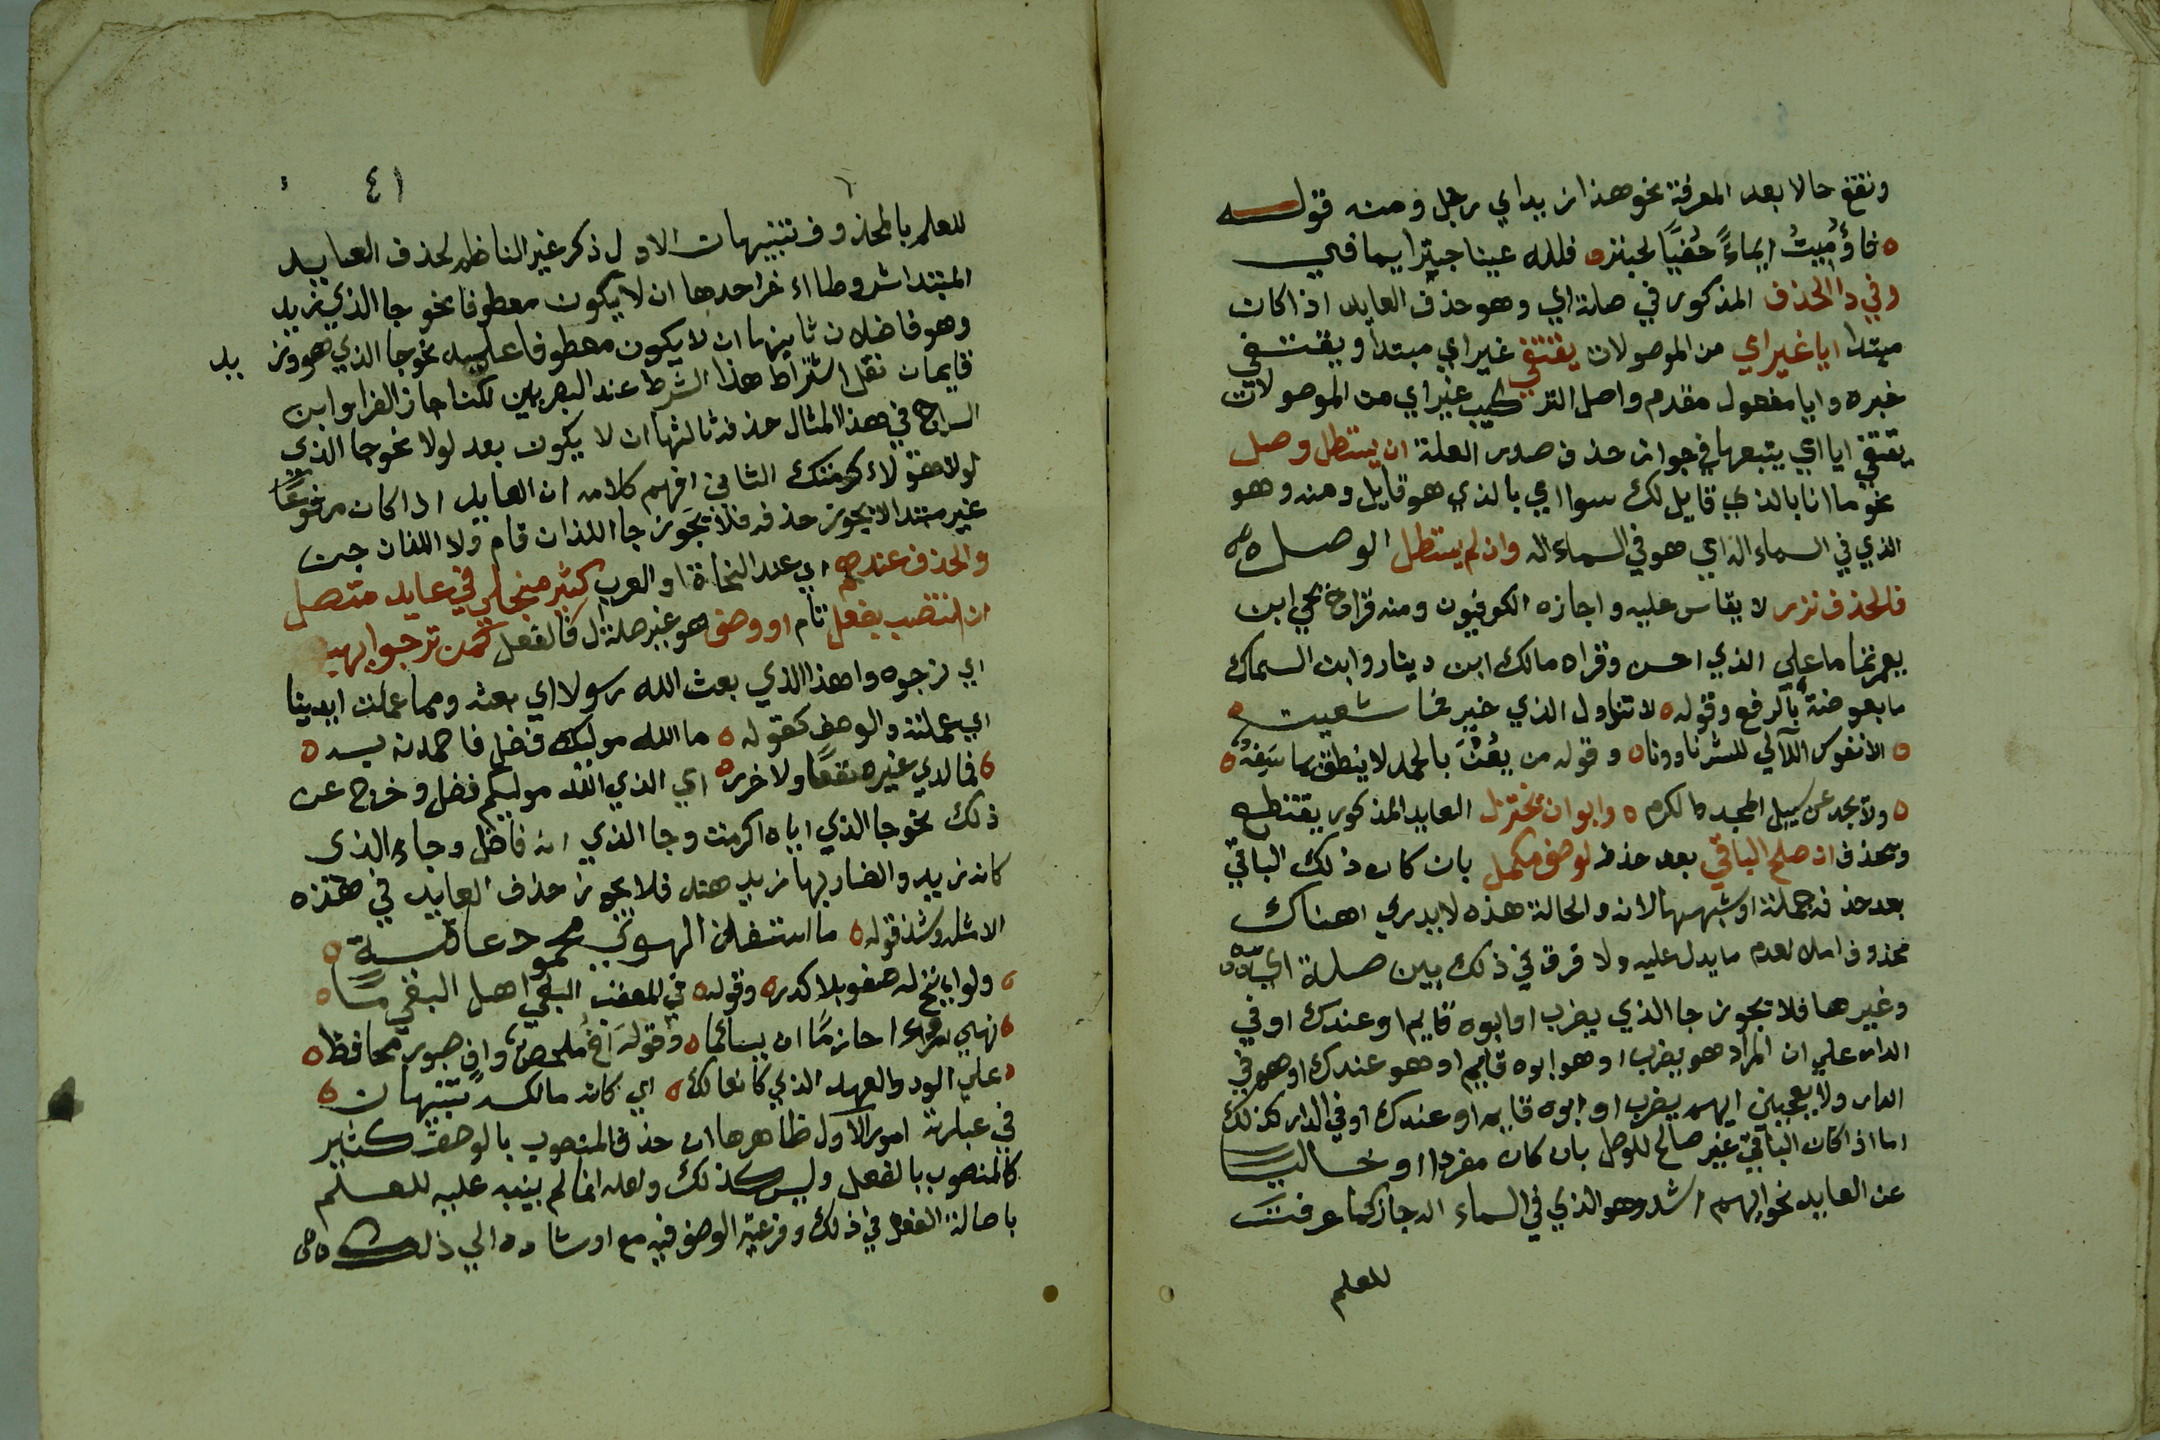 وتقع حالا بعد المعرفة نحو هذا زيد اي رجل ومنه قوله
فاؤميتُ ايماءً خفيًا لحبتر فلله عينا حبتر ايما فتي
وفي ذا الحذف المذكور في صلة اي وهو حذف العايد اذا كان
مبتدا ايا غير اي من الموصولات يقتفي غير اي مبتدا ويقتفي
خبره وايا مفعول مقدم واصل التركيب غير اي من الموصولات
يقتفي ايا اي يتبعها في جواز حذف صدر الصلة ان يستطل وصل
نحو ما انا بالذي قايل لك سوا اي بالذي هو قايل ومنه وهو
الذي في السماء اله اي هو في السماء اله وان لم يستطل الوصل
فالحذف نزر لا يقاس عليه واجازه الكوفيون ومنه قراة يحي ابن
يعمر تماما علي الذي احسن وقراه مالك ابن دينار وابن السماك
ما بعوضة بالرفع وقوله لا تنو الا الذي خير فما شقيت
الا نفوس الالي للشر ناوونا وقوله من يُعْنَ بالحمد لا ينطق بما سَفِهٌ
ولا يحد عن سبيل المجد والكرم وابوا ان يختزل العايد المذكور يقتطع
ويحذف ان صلح الباقي بعد حذفه لوصل مكمل بان كان ذلك الباقي
بعد حذفه جملة او شبهها لانه والحالة هذه لا يدري اهناك
محذوف ام لا لعدم ما يدل عليه ولا فرق في ذلك بين صلة اي
وغيرها فلا يجوز جا الذي يضرب او ابوه قايم او عندك او في
الدار علي ان المراد هو يضرب او هو ابوه قايم او هو عندك او هو في
الدار ولا يعجبني ايهم يضرب او ابوه قايم او عندك او في الدار كذلك
اما اذا كان الباقي غير صالح للوصل بان كان مفردا او خاليا
عن العايد نحو ايهم اشد وهو الذي في السماء اله جاز كما عرفت
للعلم
٤١
للعلم بالمحذوف تنبيهات الاول ذكر غير الناظم لحذف العايد
المبتدا شروطا اخر احدها ان لا يكون معطوفا نحو جا الذي زيد
وهو فاضلان ثانيها ان لا يكون معطوفا عليه نحو جا الذي هو وز يد
قايمان نقل اشتراط هذا الشرط عند البصريين لكن اجاز الفرا وابن
السراج في هذا المثال حذفه ثالثها ان لا يكون بعد لولا نحو جا الذي
لولا هو لاكرمتك الثاني افهم كلامه ان العايد اذا كان مرفوعًا
غير مبتدا لا يجوز حذفه فلا يجوز جا اللذان قام ولا اللذان جن
والحذف عندهم اي عند النحاة او العرب كثير منجلي في عايد متصل
ان انتصب بفعل تام او وصف هو غير صلة ال فالفعل كمن نرجوا يهب
اي نرجوه واهذا الذي بعث الله رسولا اي بعثه ومما عملت ايدينا
اي عملته والوصف كقوله ما الله موليك فضل فاحمدنه به
فما لدي غيره نفعًا ولا ضرر اي الذي الله موليكم فضل وخرج عن
ذلك نحو جا الذي اياه اكرمت وجا الذي انه فاضل وجاء الذي
كانه زيد والضاربها زيد هند فلا يجوز حذف العايد في هذه
الامثلة وشذ قوله ما المستفز الهوي محمود عاقبة
ولو اتيح له صفو بلا كدر وقوله في المعقب البغي اهل البغي ما
ينهي امرءا حازمًا ان يسائما وقوله اخ مخلص وافٍ صبور محافظ
علي الود والعهد الذي كان مالك اي كانه مالك تنبيهات
في عبارته امور الاول ظاهرها ان حذف المنصوب بالوصف كثير
كالمنصوب بالفعل وليس كذلك ولعله انما لم ينبه عليه للعلم
باصالة الفعل في ذلك وفرعية الوصف فيه مع ارشاده الي ذلك